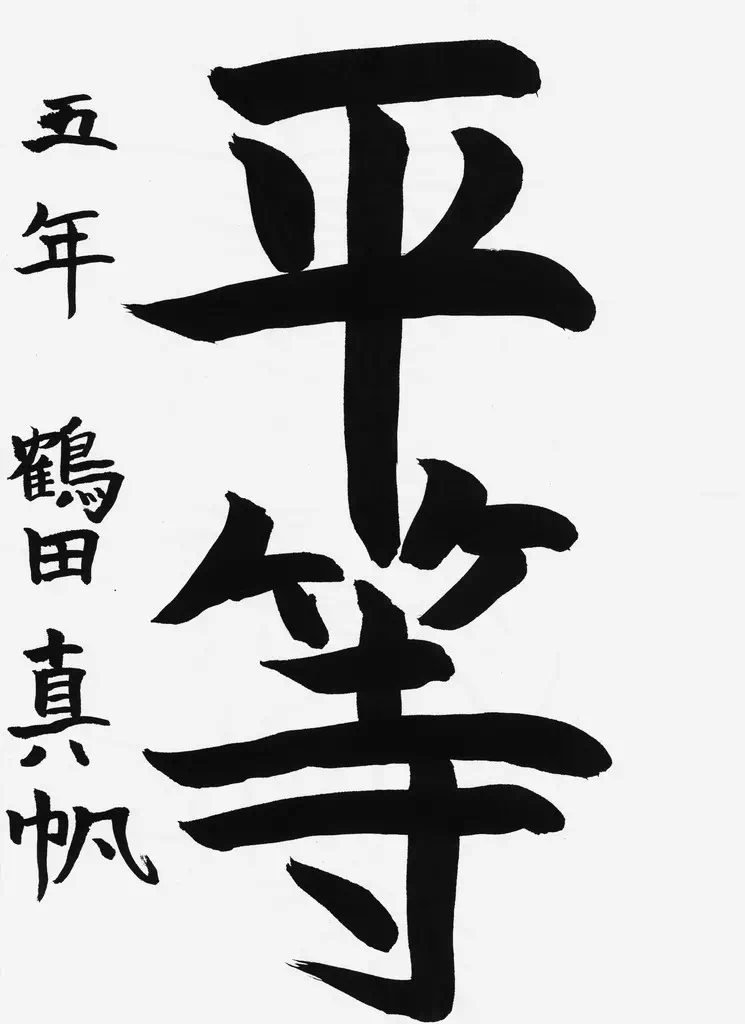 平等
五年 鶴田真帆